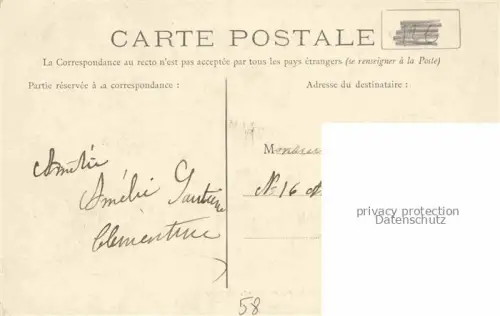 CARTE POSTALE
La Correspondance au recto n'est pas acceptée par tous les pays étrangers (se renseigner à la Poste)
Partie réservée à la correspondance :
Adresse du destinataire :
Amitié
Amélie
Clémentine
Monsieur
No 16
privacy protection
Datenschutz
58